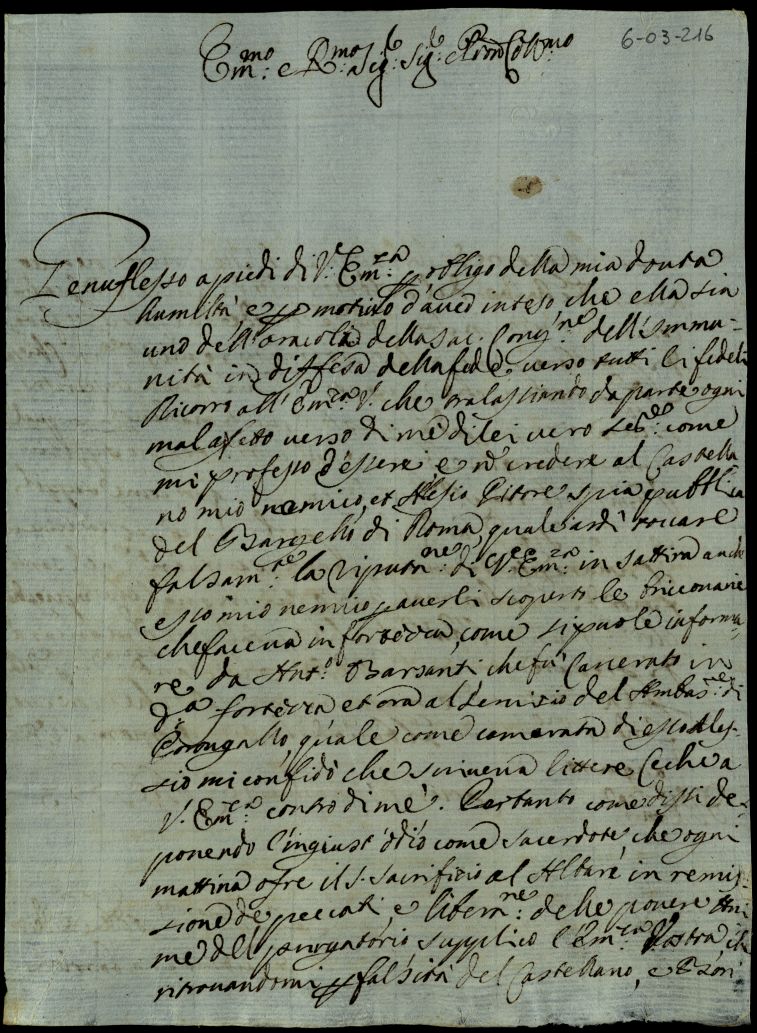 6-03-216
Em.mo e R.mo Sig.r Sig.r e Pron Col.mo
Genuflesso a piedi di V.a Em.za p obligo della mia douta
humiltà e p motiuo d'aued inteso che ella sia
uno dell'oracoli della Sac. Cong.ne dell'Immu-
nità in diffesa della fede, uerso tutti li fedeli
Ricorro all'Em.za V. che tralasciando da parte ogni
mal affetto uerso di mè di lei uero Ser.re come
mi professo d'essere e nō credere al Castella
no mio nemico, et Alesio Pitore spia pubblica
del Bargello di Roma, quale ardì toccare
falsam.te la riputa.ne di V.a Em.za in sattira anche
esso mio nemico p auerli scoperto le bricconarie
che faceua in fortezza, come si puole informa-
re da Ant.o Barsanti che fù Carcerato in
d.a fortezza et ora al Seruizio del Ambas.re di
Portogallo, quale come camerata di esso Ales-
sio mi confidò che scriueua littere Ceche a
V. Em.za contro di mè. Pertanto come dissi de-
ponendo l'ingiust'odio come sacerdote, che ogni
mattina ofre il S. Sacrificio al Altare in remis-
sione de peccati e libera.ne delle pouere Ani
me del purgatorio supplico l'Em.za Vostra che
ritrouandomi p falsità del Castellano, e